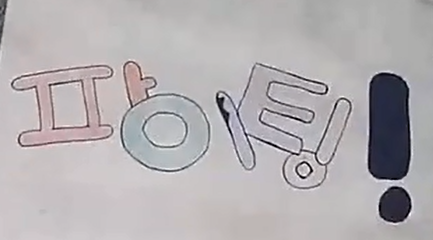 파이팅!